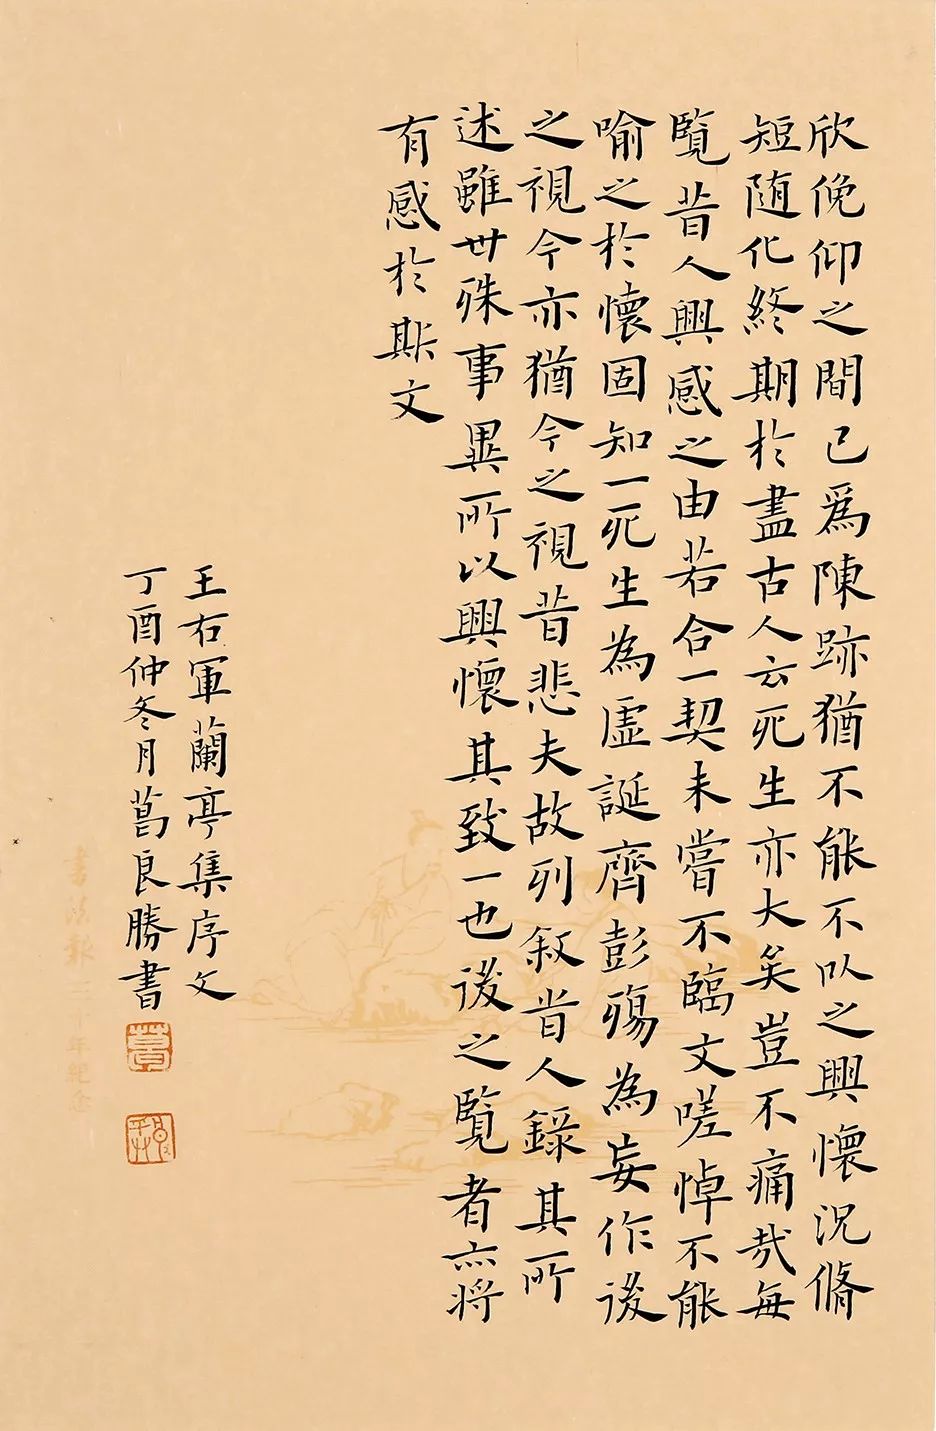 欣俛仰之間已爲陳跡猶不能不以之興懷況脩
短随化終期於盡古人云死生亦大矣豈不痛哉每
覽昔人興感之由若合一契未嘗不臨文嗟悼不能
喻之於懷固知一死生為虛誕齊彭殤為妄作後
之視今亦猶今之視昔悲夫故列叙昔人錄其所
述雖世殊事異所以興懷其致一也後之覽者亦將
有感於斯文
王右軍蘭亭集序文
丁酉仲冬月葛良勝書
書法報三十年紀念